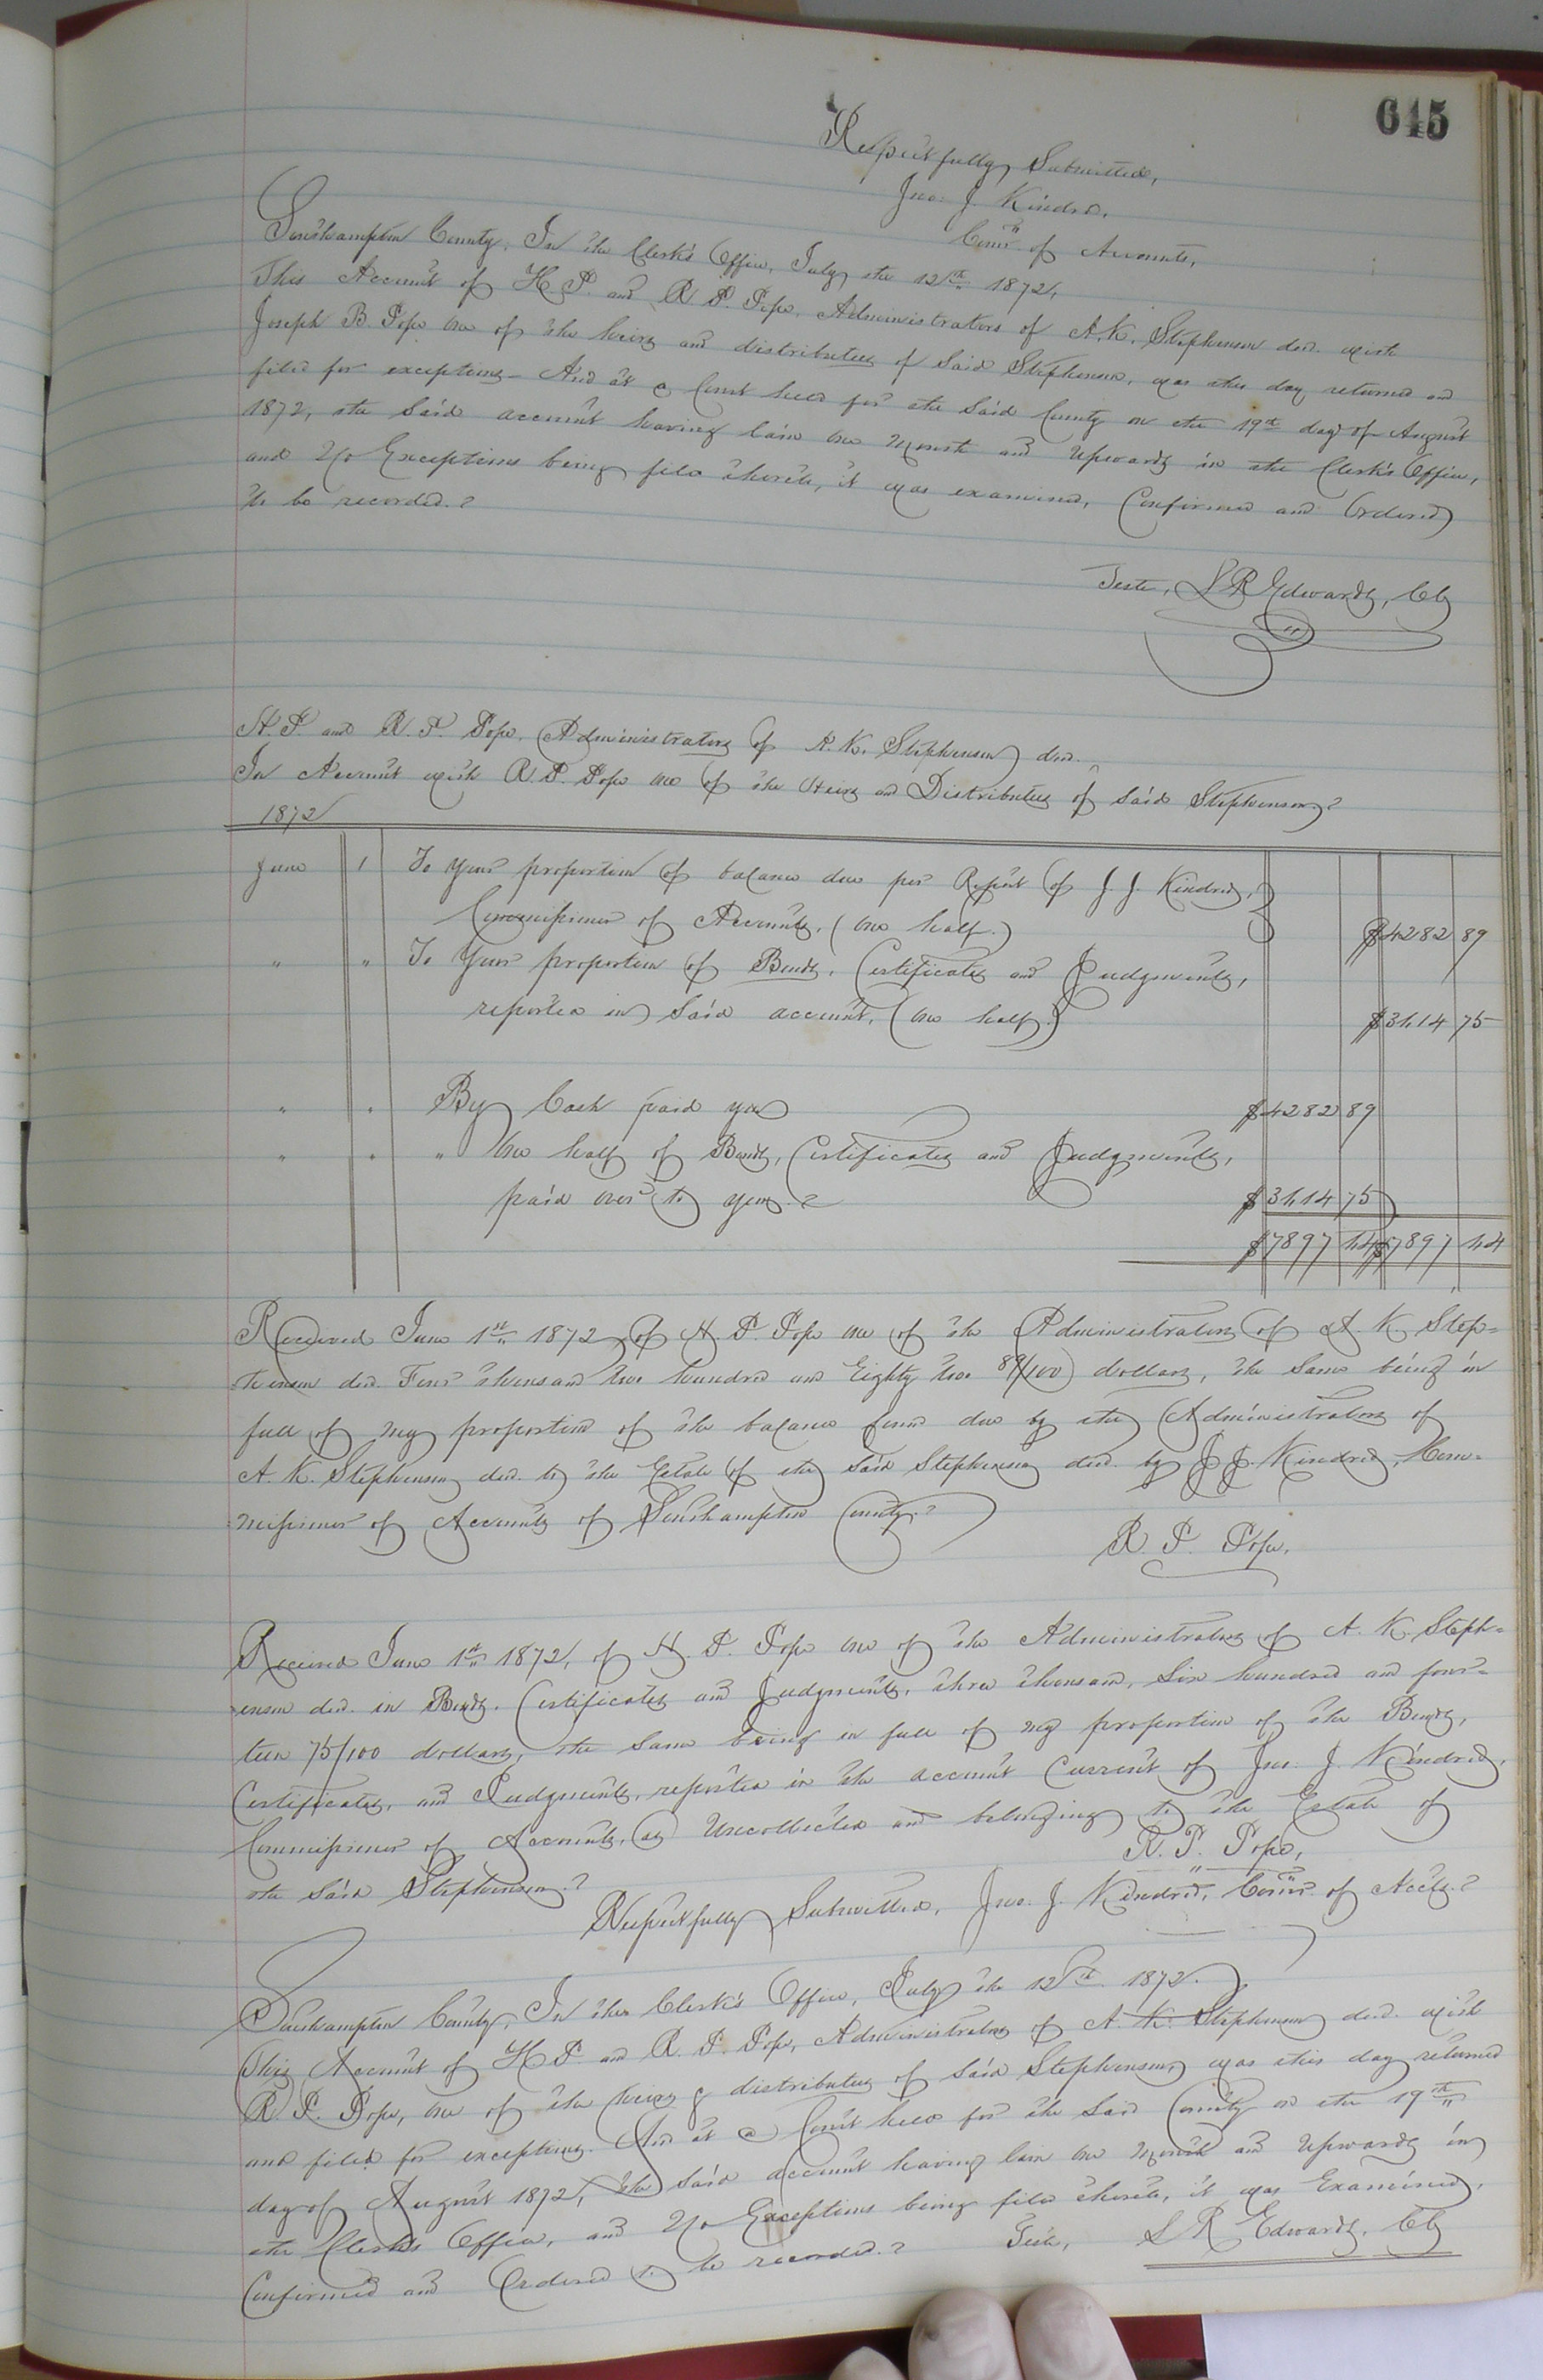 645
Respectfully Submitted,
Jno. J. Kindred,
Comr. of Accounts,
Southampton County, In the Clerk's Office, July the 12th 1872,
This Account of H. P. and R. P. Pope, Administrators of A. K. Stephenson decd. with
Joseph B. Pope one of the heirs and distributees of Said Stephenson, was this day returned and
filed for exceptions – And at a Court held for the Said County on the 19th day of August
1872, the Said account having lain one Month and Upwards in the Clerk's Office,
and No Exceptions being filed thereto, it was examined, Confirmed and Ordered
to be recorded.
Teste, L R Edwards, Clk
H. P. and R. P. Pope, Administrators of A. K. Stephenson decd.
In Account with R. P. Pope one of the Heirs and Distributees of Said Stephenson
1872
June 1 To Your proportion of balance due per Report of J. J. Kindred,
Commissioner of Accounts, (one half.) $4282 89
" " To Your proportion of Bonds, Certificates and Judgments,
reported in Said account, (one half.) $3614 75
" " By Cash paid you $4282 89
" " " One half of Bonds, Certificates and Judgments,
paid over to you. $3614 75
$7897 64 $7897 64
Received June 1st 1872, of H. P. Pope one of the Administrators of A. K Step=
henson decd. Four thousand two hundred and Eighty two 89/100 dollars, the Same being in
full of my proportion of the balance found due by the Administrators of
A. K. Stephenson decd. to the Estate of the Said Stephenson decd. by J J. Kindred, Com=
missioner of Accounts of Southampton County.
R. P. Pope.
Received June 1st 1872, of H. P. Pope one of the Administrators of A. K. Steph=
enson decd. in Bonds, Certificates and Judgments, three thousand, Six hundred and four=
teen 75/100 dollars, the Same being in full of my proportion of the Bonds,
Certificates, and Judgments, reported in the account Current of Jno. J. Kindred,
Commissioner of Accounts, as Uncollected and belonging to the Estate of
the Said Stephenson.
R. P. Pope,
Respectfully Submitted, Jno. J. Kindred, Comr. of Accts.
Southampton County, In the Clerk's Office, July the 12th 1872.
This Account of H P. and R. P. Pope, Administrators of A. K. Stephenson decd. with
R. P. Pope, one of the heirs & distributees of Said Stephenson, was this day returned
and filed for exceptions. And at a Court held for the Said County on the 19th
day of August 1872, the Said account having lain one Month and Upwards in
the Clerk's Office, and No Exceptions being filed thereto, it was Examined,
Confirmed and Ordered to be recorded.
Teste, L R Edwards, Clk